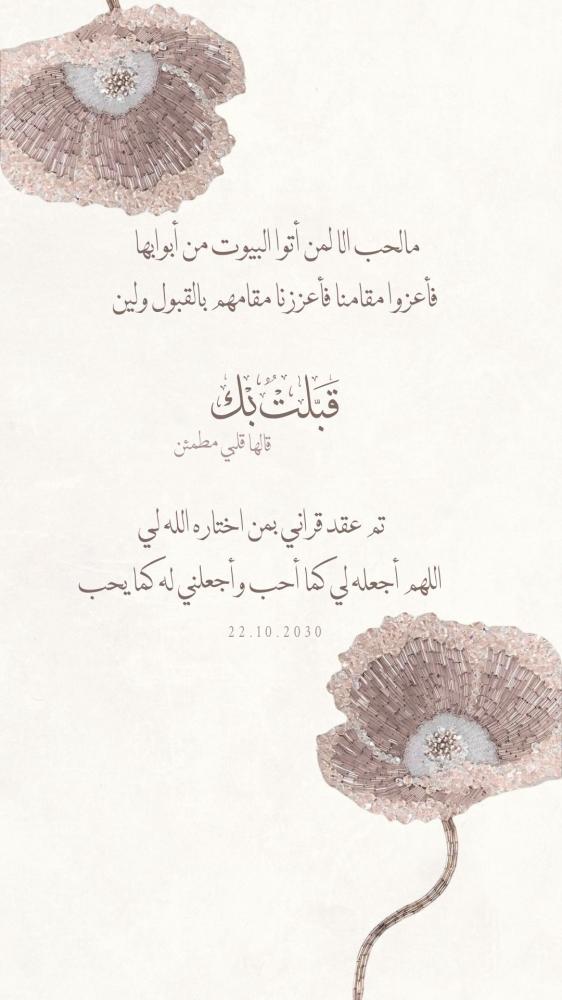 مالحب الا لمن أتوا البيوت من أبوابها
فأعزوا مقامنا فأعززنا مقامهم بالقبول ولين
قَبّلتُ بْك
قالها قلبي مطمئن
تم عقد قراني بمن اختاره الله لي
اللهم أجعله لي كما أحب وأجعلني له كما يحب
22.10.2030